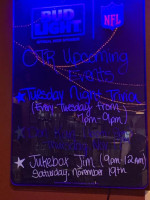 BUD
LIGHT
NFL
OTR Upcoming
Events
★Tuesday Night Trivia
(Every Tuesday from
7pm-9pm)
★Jukebox Jim (9pm-12am)
Saturday, November 19th